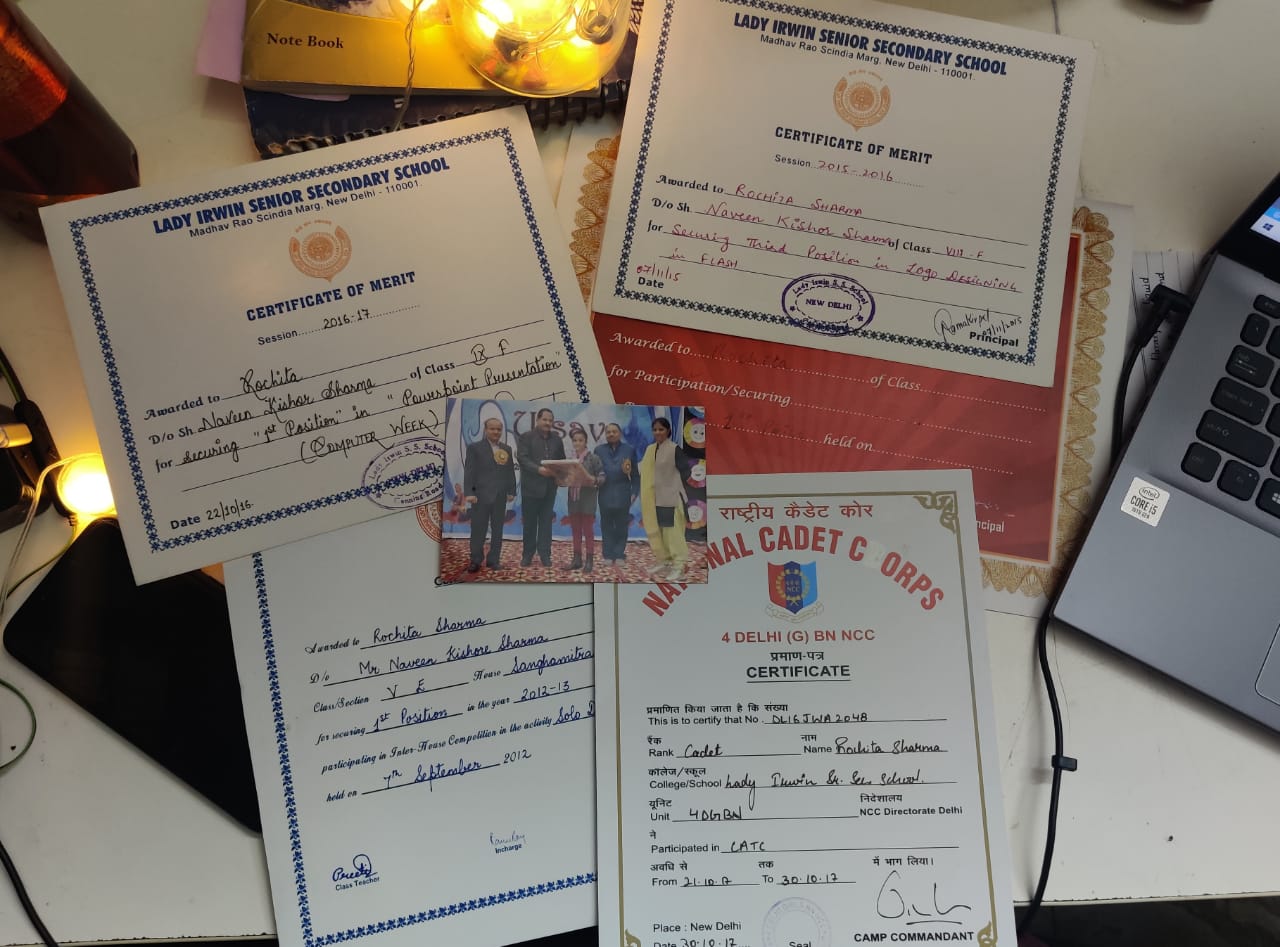 Note Book
LADY IRWIN SENIOR SECONDARY SCHOOL
Madhav Rao Scindia Marg. New Delhi - 110001.
CERTIFICATE OF MERIT
Session...2015-2016.........
Awarded to Rochita Sharma
D/o Sh. Naveen Kishor Sharma of Class VIII-F
for Securing Third Position in Logo Designing
in FLASH
07/11/15
Date
Lady Irwin S.S. School
NEW DELHI
07/11/2015
Principal
LADY IRWIN SENIOR SECONDARY SCHOOL
Madhav Rao Scindia Marg, New Delhi - 110001.
CERTIFICATE OF MERIT
Session.......2016-17...............
Awarded to Rochita
D/o Sh. Naveen Kishor Sharma of Class IX F
for securing "1st Position" in "Powerpoint Presentation"
(COMPUTER WEEK)
Lady Irwin S.S. School
Canning Road
Date 22/10/16
Awarded to.....Rochita..................of Class.........................
for Participation/Securing.........................
held on.........................
Utsav
Awarded to Rochita Sharma
D/o Mr Naveen Kishore Sharma
Class/Section V E House Sanghamitra
for securing 1st Position in the year 2012-13
participating in Inter-House Competition in the activity Solo
held on 7th September 2012
Incharge
Preeti
Class Teacher
राष्ट्रीय कैडेट कोर
NATIONAL CADET CORPS
NCC
4 DELHI (G) BN NCC
प्रमाण-पत्र
CERTIFICATE
प्रमाणित किया जाता है कि संख्या
This is to certify that No. DL16JWA2048
रैंक नाम
Rank Cadet Name Rochita Sharma
कॉलेज/स्कूल
College/School Lady Irwin Sr. Sec School.
यूनिट निदेशालय
Unit 4DGBN NCC Directorate Delhi
ने
Participated in CATC
अवधि से तक में भाग लिया।
From 21.10.17 To 30.10.17
Place : New Delhi
Date 30.10.17 Seal CAMP COMMANDANT
intel
CORE i5